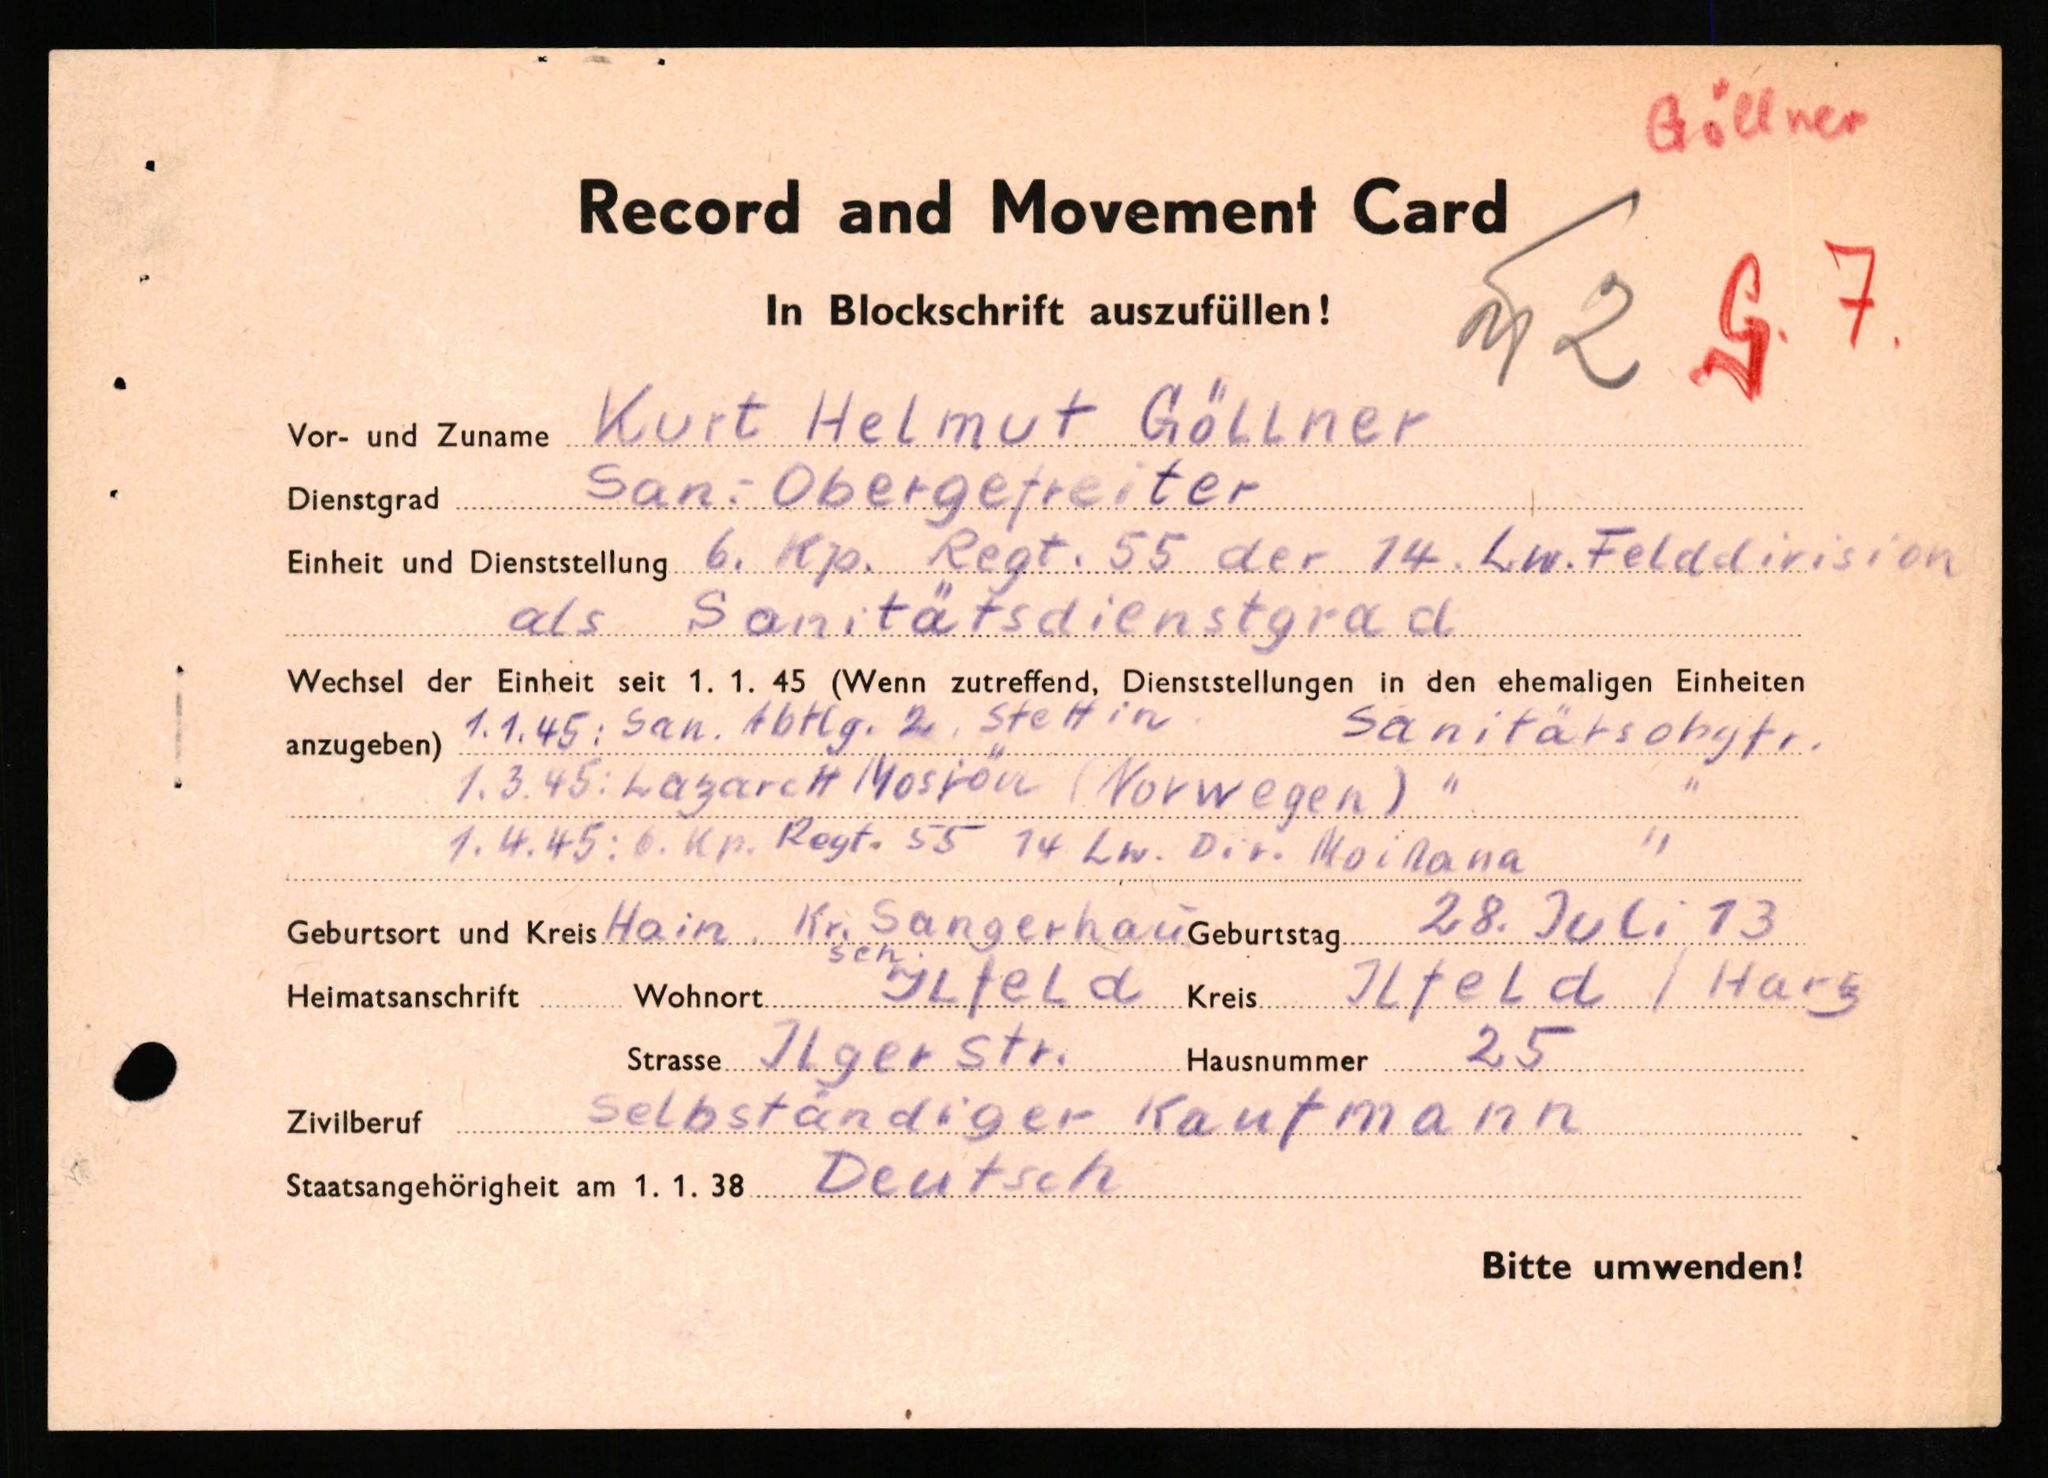 Göllner
Record and Movement Card
In Blockschrift auszufüllen!
2 G. 7.
Vor- und Zuname Kurt Helmut Göllner
Dienstgrad San.-Obergefreiter
Einheit und Dienststellung 6. Kp. Regt. 55 der 14. Lw. Felddivision
als Sanitätsdienstgrad
Wechsel der Einheit seit 1. 1. 45 (Wenn zutreffend, Dienststellungen in den ehemaligen Einheiten
anzugeben) 1.1.45: San. Abtlg. 2, Stettin Sanitätsobgfr.
1.3.45: Lazarett Mosjön (Norwegen) " "
1.4.45: 6. Kp. Regt. 55 14 Lw. Div. MoiRana "
Geburtsort und Kreis Hain, Kr. Sangerhau Geburtstag 28. Juli 13
sen.
Heimatsanschrift Wohnort Ilfeld Kreis Ilfeld / Harz
Strasse Ilger Str. Hausnummer 25
Zivilberuf Selbständiger Kaufmann
Staatsangehörigheit am 1. 1. 38 Deutsch
Bitte umwenden!